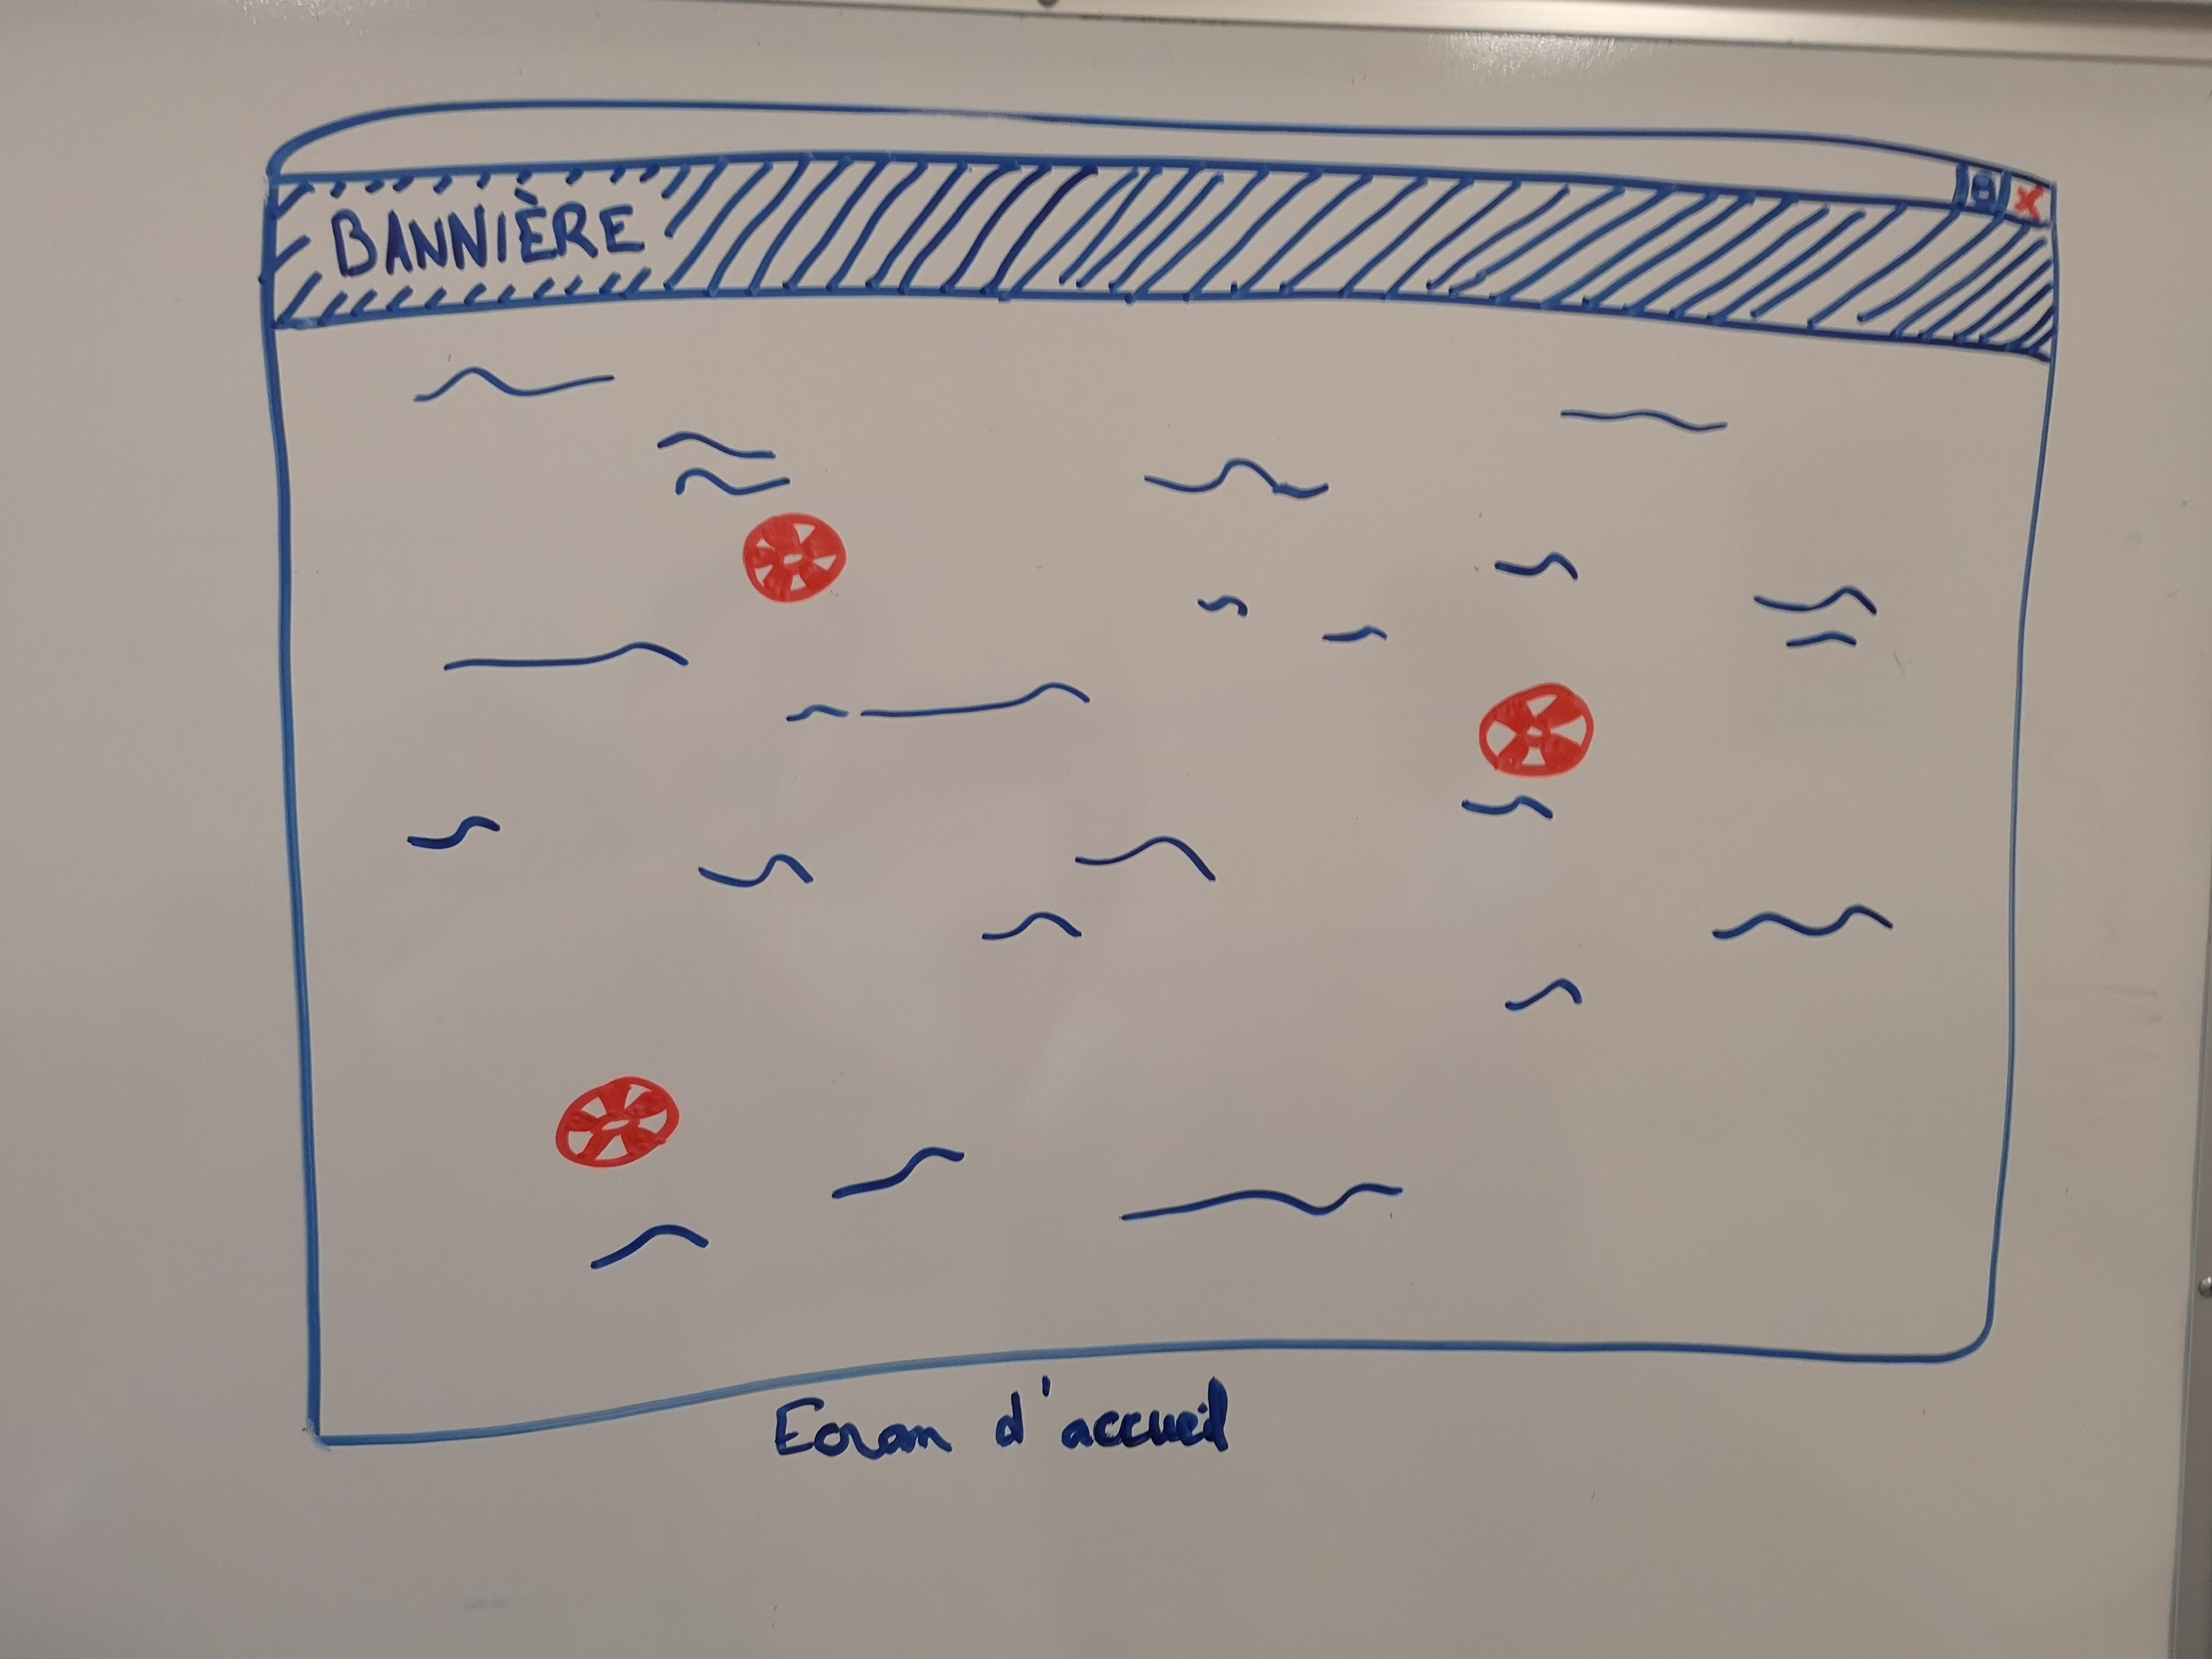 BANNIÈRE
Ecran d'accueil